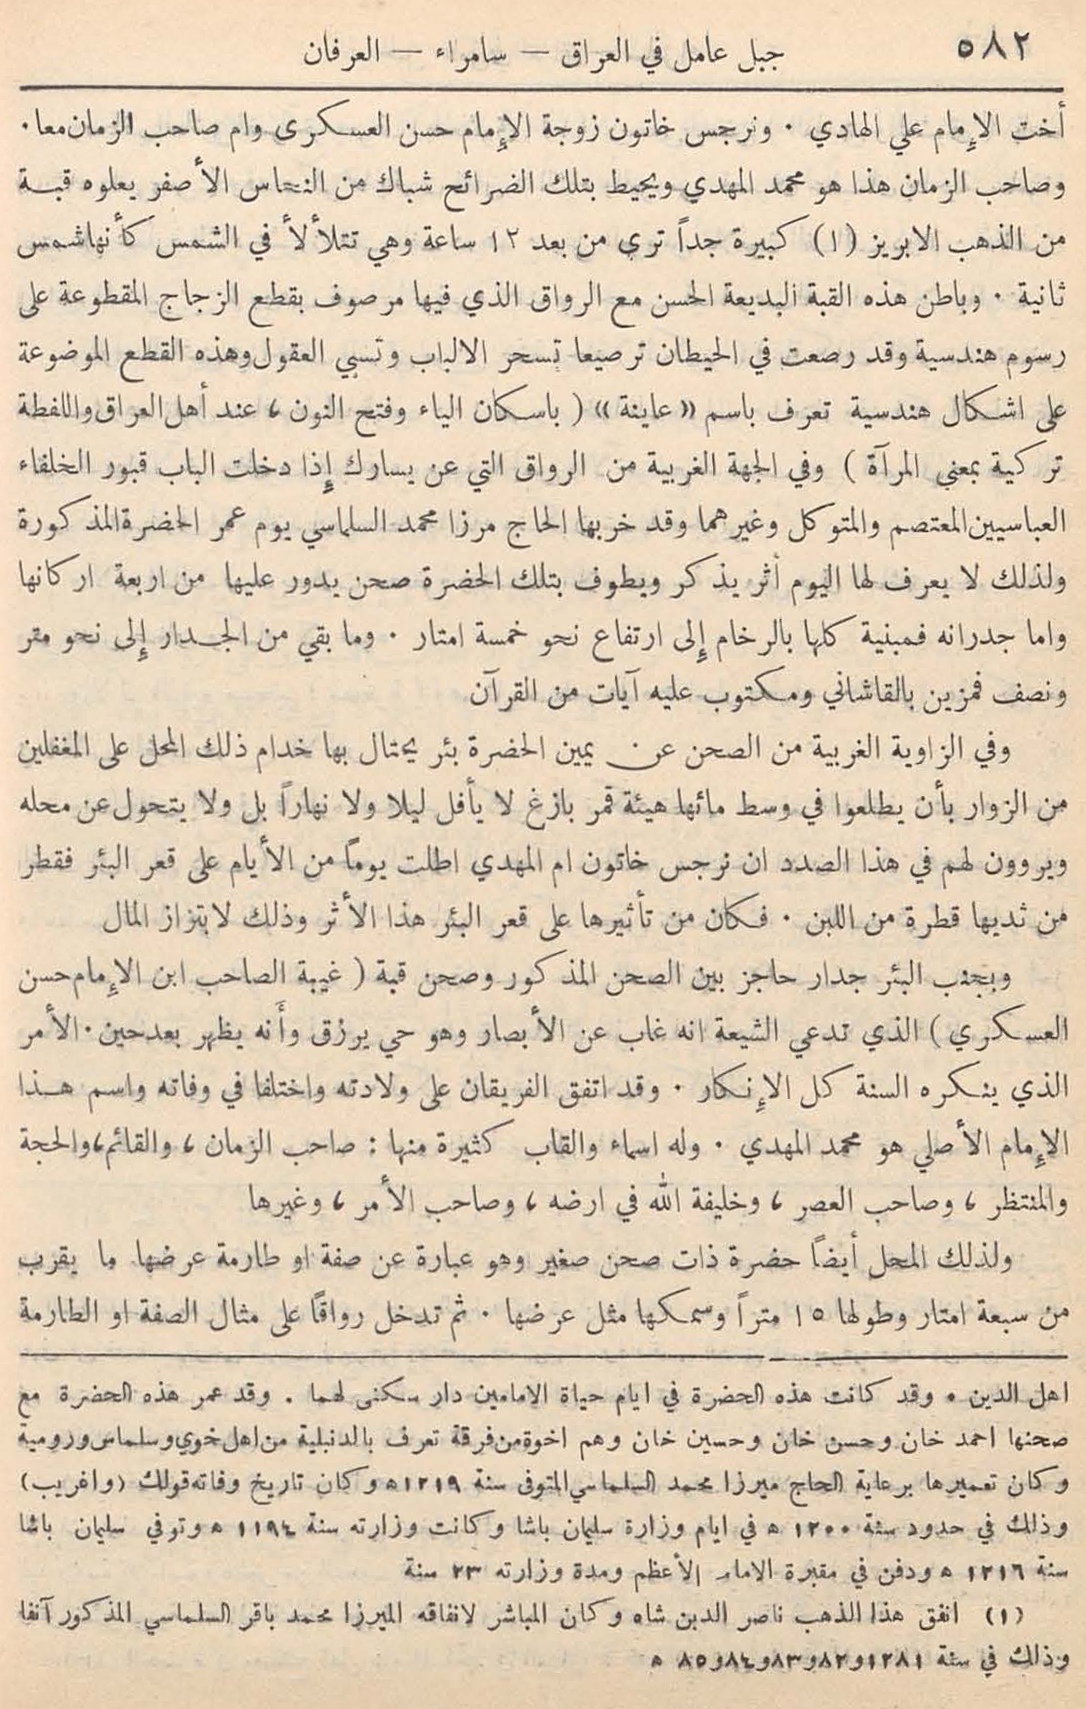 ٥٨٢
جبل عامل في العراق — سامراء — العرفان
أخت الإمام علي الهادي . ونرجس خاتون زوجة الإمام حسن العسكري وام صاحب الزمان معا .
وصاحب الزمان هذا هو محمد المهدي ويحيط بتلك الضرائح شباك من النحاس الأصفر يعلوه قبة
من الذهب الابريز (١) كبيرة جداً ترى من بعد ١٢ ساعة وهي تتلألأ في الشمس كأنها شمس
ثانية . وباطن هذه القبة البديعة الحسن مع الرواق الذي فيها مرصوف بقطع الزجاج المقطوعة على
رسوم هندسية وقد رصعت في الحيطان ترصيعا تسحر الالباب وتسبي العقول وهذه القطع الموضوعة
على اشكال هندسية تعرف باسم «عاينة» ( باسكان الياء وفتح النون ، عند أهل العراق واللفظة
تركية بمعنى المرآة ) وفي الجهة الغربية من الرواق التي عن يسارك إذا دخلت الباب قبور الخلفاء
العباسيين المعتصم والمتوكل وغيرهما وقد خربها الحاج مرزا محمد السلماسي يوم عمر الحضرة المذكورة
ولذلك لا يعرف لها اليوم أثر يذكر ويطوف بتلك الحضرة صحن يدور عليها من اربعة اركانها
واما جدرانه فمبنية كلها بالرخام إلى ارتفاع نحو خمسة امتار . وما بقي من الجدار إلى نحو متر
ونصف فمزين بالقاشاني ومكتوب عليه آيات من القرآن
وفي الزاوية الغربية من الصحن عن يمين الحضرة بئر يحتال بها خدام ذلك المحل على المغفلين
من الزوار بأن يطلعوا في وسط مائها هيئة قمر بازغ لا يأفل ليلا ولا نهاراً بل ولا يتحول عن محله
ويروون لهم في هذا الصدد ان نرجس خاتون ام المهدي اطلت يوماً من الأيام على قعر البئر فقطر
من ثديها قطرة من اللبن . فكان من تأثيرها على قعر البئر هذا الأثر وذلك لابتزاز المال
وبجنب البئر جدار حاجز بين الصحن المذكور وصحن قبة ( غيبة الصاحب ابن الإمام حسن
العسكري ) الذي تدعي الشيعة انه غاب عن الأبصار وهو حي يرزق وأنه يظهر بعد حين . الأمر
الذي ينكره السنة كل الإنكار . وقد اتفق الفريقان على ولادته واختلفا في وفاته واسم هذا
الإمام الأصلي هو محمد المهدي . وله اسماء والقاب كثيرة منها : صاحب الزمان ، والقائم ، والحجة
والمنتظر ، وصاحب العصر ، وخليفة الله في ارضه ، وصاحب الأمر ، وغيرها
ولذلك المحل أيضاً حضرة ذات صحن صغير وهو عبارة عن صفة او طارمة عرضها ما يقرب
من سبعة امتار وطولها ١٥ متراً وسمكها مثل عرضها . ثم تدخل رواقاً على مثال الصفة او الطارمة
اهل الدين . وقد كانت هذه الحضرة في ايام حياة الامامين دار سكنى لهما . وقد عمر هذه الحضرة مع
صحنها احمد خان وحسن خان وحسين خان وهم اخوة من فرقة تعرف بالدنبلية من اهل خوي وسلماس ورومية
وكان تعميرها برعاية الحاج ميرزا محمد السلماسي المتوفى سنة ١٢١٩ ه وكان تاريخ وفاته قولك (واغريب)
وذلك في حدود سنة ١٢٠٠ ه في ايام وزارة سليمان باشا وكانت وزارته سنة ١١٩٤ ه وتوفي سليمان باشا
سنة ١٢١٦ ه ودفن في مقبرة الامام الأعظم ومدة وزارته ٢٣ سنة
(١) انفق هذا الذهب ناصر الدين شاه وكان المباشر لانفاقه الميرزا محمد باقر السلماسي المذكور آنفا
وذلك في سنة ١٢٨١و٨٢و٨٣و٨٤و٨٥ ه